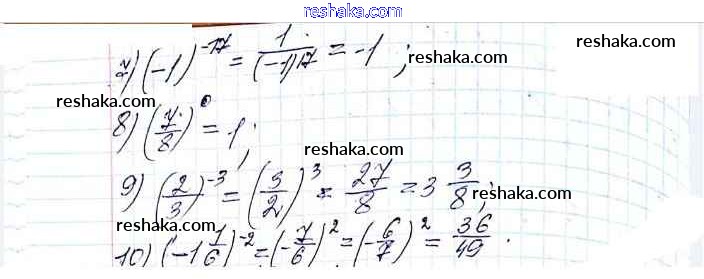 reshaka.com
7) (-1)^-17 = 1/(-1)17 = -1 ;
reshaka.com
reshaka.com
8) (7/8)^0 = 1 ;
reshaka.com
reshaka.com
9) (2/3)^-3 = (3/2)^3 = 27/8 = 3 3/8 ;
reshaka.com
reshaka.com
10) (-1 1/6)^-2 = (-7/6)^2 = (-6/7)^2 = 36/49 .